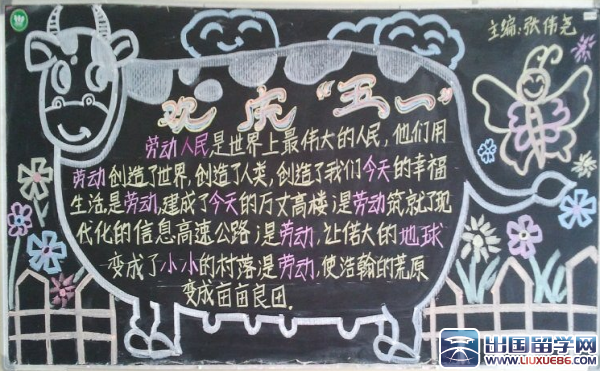 主编:张伟尧
欢庆"五一"
劳动人民是世界上最伟大的人民,他们用
劳动创造了世界,创造了人类,创造了我们今天的幸福
生活,是劳动,建成了今天的万丈高楼;是劳动筑就了现
代化的信息高速公路;是劳动,让偌大的地球
变成了小小的村落;是劳动,使浩翰的荒原
变成亩亩良田。
出国留学网
WWW.LIUXUE86.COM